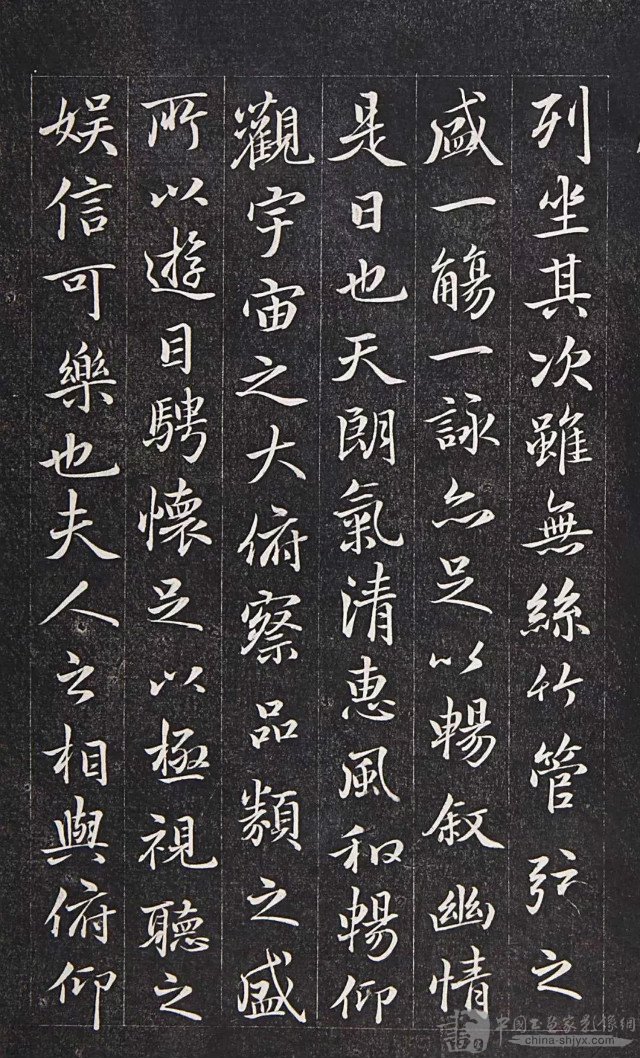 列坐其次雖無絲竹管弦之
盛一觴一詠亦足以暢叙幽情
是日也天朗氣清惠風和暢仰
觀宇宙之大俯察品類之盛
所以遊目騁懷足以極視聽之
娱信可樂也夫人之相與俯仰
中国书画家影像網
china-shjyx.com